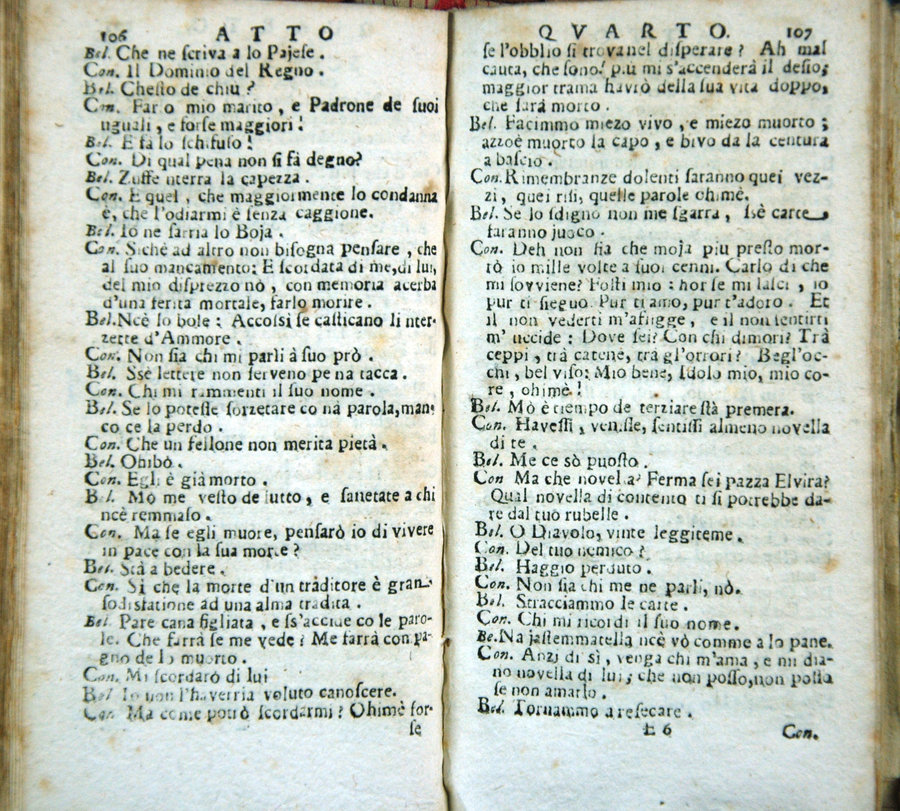 106 ATTO
Bel. Che ne ſcriva a lo Pajeſe.
Con. Il Dominio del Regno.
Bel. Cheſto de chiu?
Con. Farlo mio marito, e Padrone de ſuoi
uguali, e forſe maggiori!
Bel. E fà lo ſchifuſo!
Con. Di qual pena non ſi fà degno?
Bel. Zuffe nterra la capezza.
Con. E quel, che maggiormente lo condanna
è, che l'odiarmi è ſenza caggione.
Bel. Io ne ſarria lo Boja.
Con. Sichè ad altro non biſogna penſare, che
al ſuo mancamento; E ſcordata di me, di lui,
del mio diſprezzo nò, con memoria acerba
d'una ferita mortale, farlo morire.
Bel. Ncè lo bole: Accoſsi ſe caſticano li nter-
zette d'Ammore.
Con. Non ſia chi mi parli à ſuo prò.
Bel. Sse lettere non ſerveno pe na tacca.
Con. Chi mi rammenti il ſuo nome.
Bel. Se lo poteſſe ſorzetare co nà parola, man-
co ce la perdo.
Con. Che un fellone non merita pietà.
Bel. Ohibò.
Con. Egli è già morto.
Bel. Mò me veſto de lutto, e ſanetate a chi
ncè remmaſo.
Con. Ma ſe egli muore, penſarò io di vivere
in pace con la ſua morte?
Bel. Stà a bedere.
Con. Si che la morte d'un tràditore è gran
ſodisfatione ad una alma tradita.
Bel. Pare cana figliata, e ſs'accide co le paro-
le. Che farrà ſe me vede? Me farrà compa-
gno de lo muorto.
Con. Mi ſcordarò di lui
Bel. Io non l'haverria voluto canoſcere.
Con. Ma come potrò ſcordarmi? Ohimè for-
ſe
QVARTO. 107
ſe l'obblio ſi trova nel diſperare? Ah mal
cauta, che ſono! più mi s'accenderà il deſio;
maggior trama havrò della ſua vita doppo,
che ſarà morto.
Bel. Facimmo miezo vivo, e miezo muorto;
azzoè muorto la capo, e bivo da la centura
a baſcio.
Con. Rimembranze dolenti ſaranno quei vez-
zi, quei riſi, quelle parole ohimè.
Bel. Se lo ſdigno non me sgarra, ſsè carte
faranno juoco.
Con. Deh non ſia che moja più preſto mor-
rò io mille volte a ſuoi cenni. Carlo di che
mi ſovviene? Foſti mio: hor ſe mi laſci, io
pur ti ſieguo. Pur ti amo, pur t'adoro. Et
il non vederti m'afligge, e il non ſentirti
m'uccide: Dove ſei? Con chi dimori? Trà
ceppi, trà catene, trà gl'orrori? Begl'oc-
chi, bel viſo; Mio bene, Idolo mio, mio co-
re, ohimè!
Bel. Mò è tiempo de terziare ſtà premera.
Con. Haveſſi, veniſſe, ſentiſſi almeno novella
di te.
Bel. Me ce sò puoſto.
Con Ma che novella? Ferma ſei pazza Elvira?
Qual novella di contento ti ſi potrebbe da-
re dal tuo rubelle.
Bel. O Diavolo, vinte leggiteme.
Con. Del tuo nemico?
Bel. Haggio perduto.
Con. Non ſia chi me ne parli, nò.
Bel. Stracciammo le carte.
Con. Chi mi ricordi il ſuo nome.
Be. Na jaſtemmatella ncè vò comme a lo pane.
Con. Anzi di sì, venga chi m'ama, e mi dia-
no novella di lui; che non poſſo, non poſſo
ſe non amarlo.
Bel. Tornammo a reſecare.
E 6 Con.